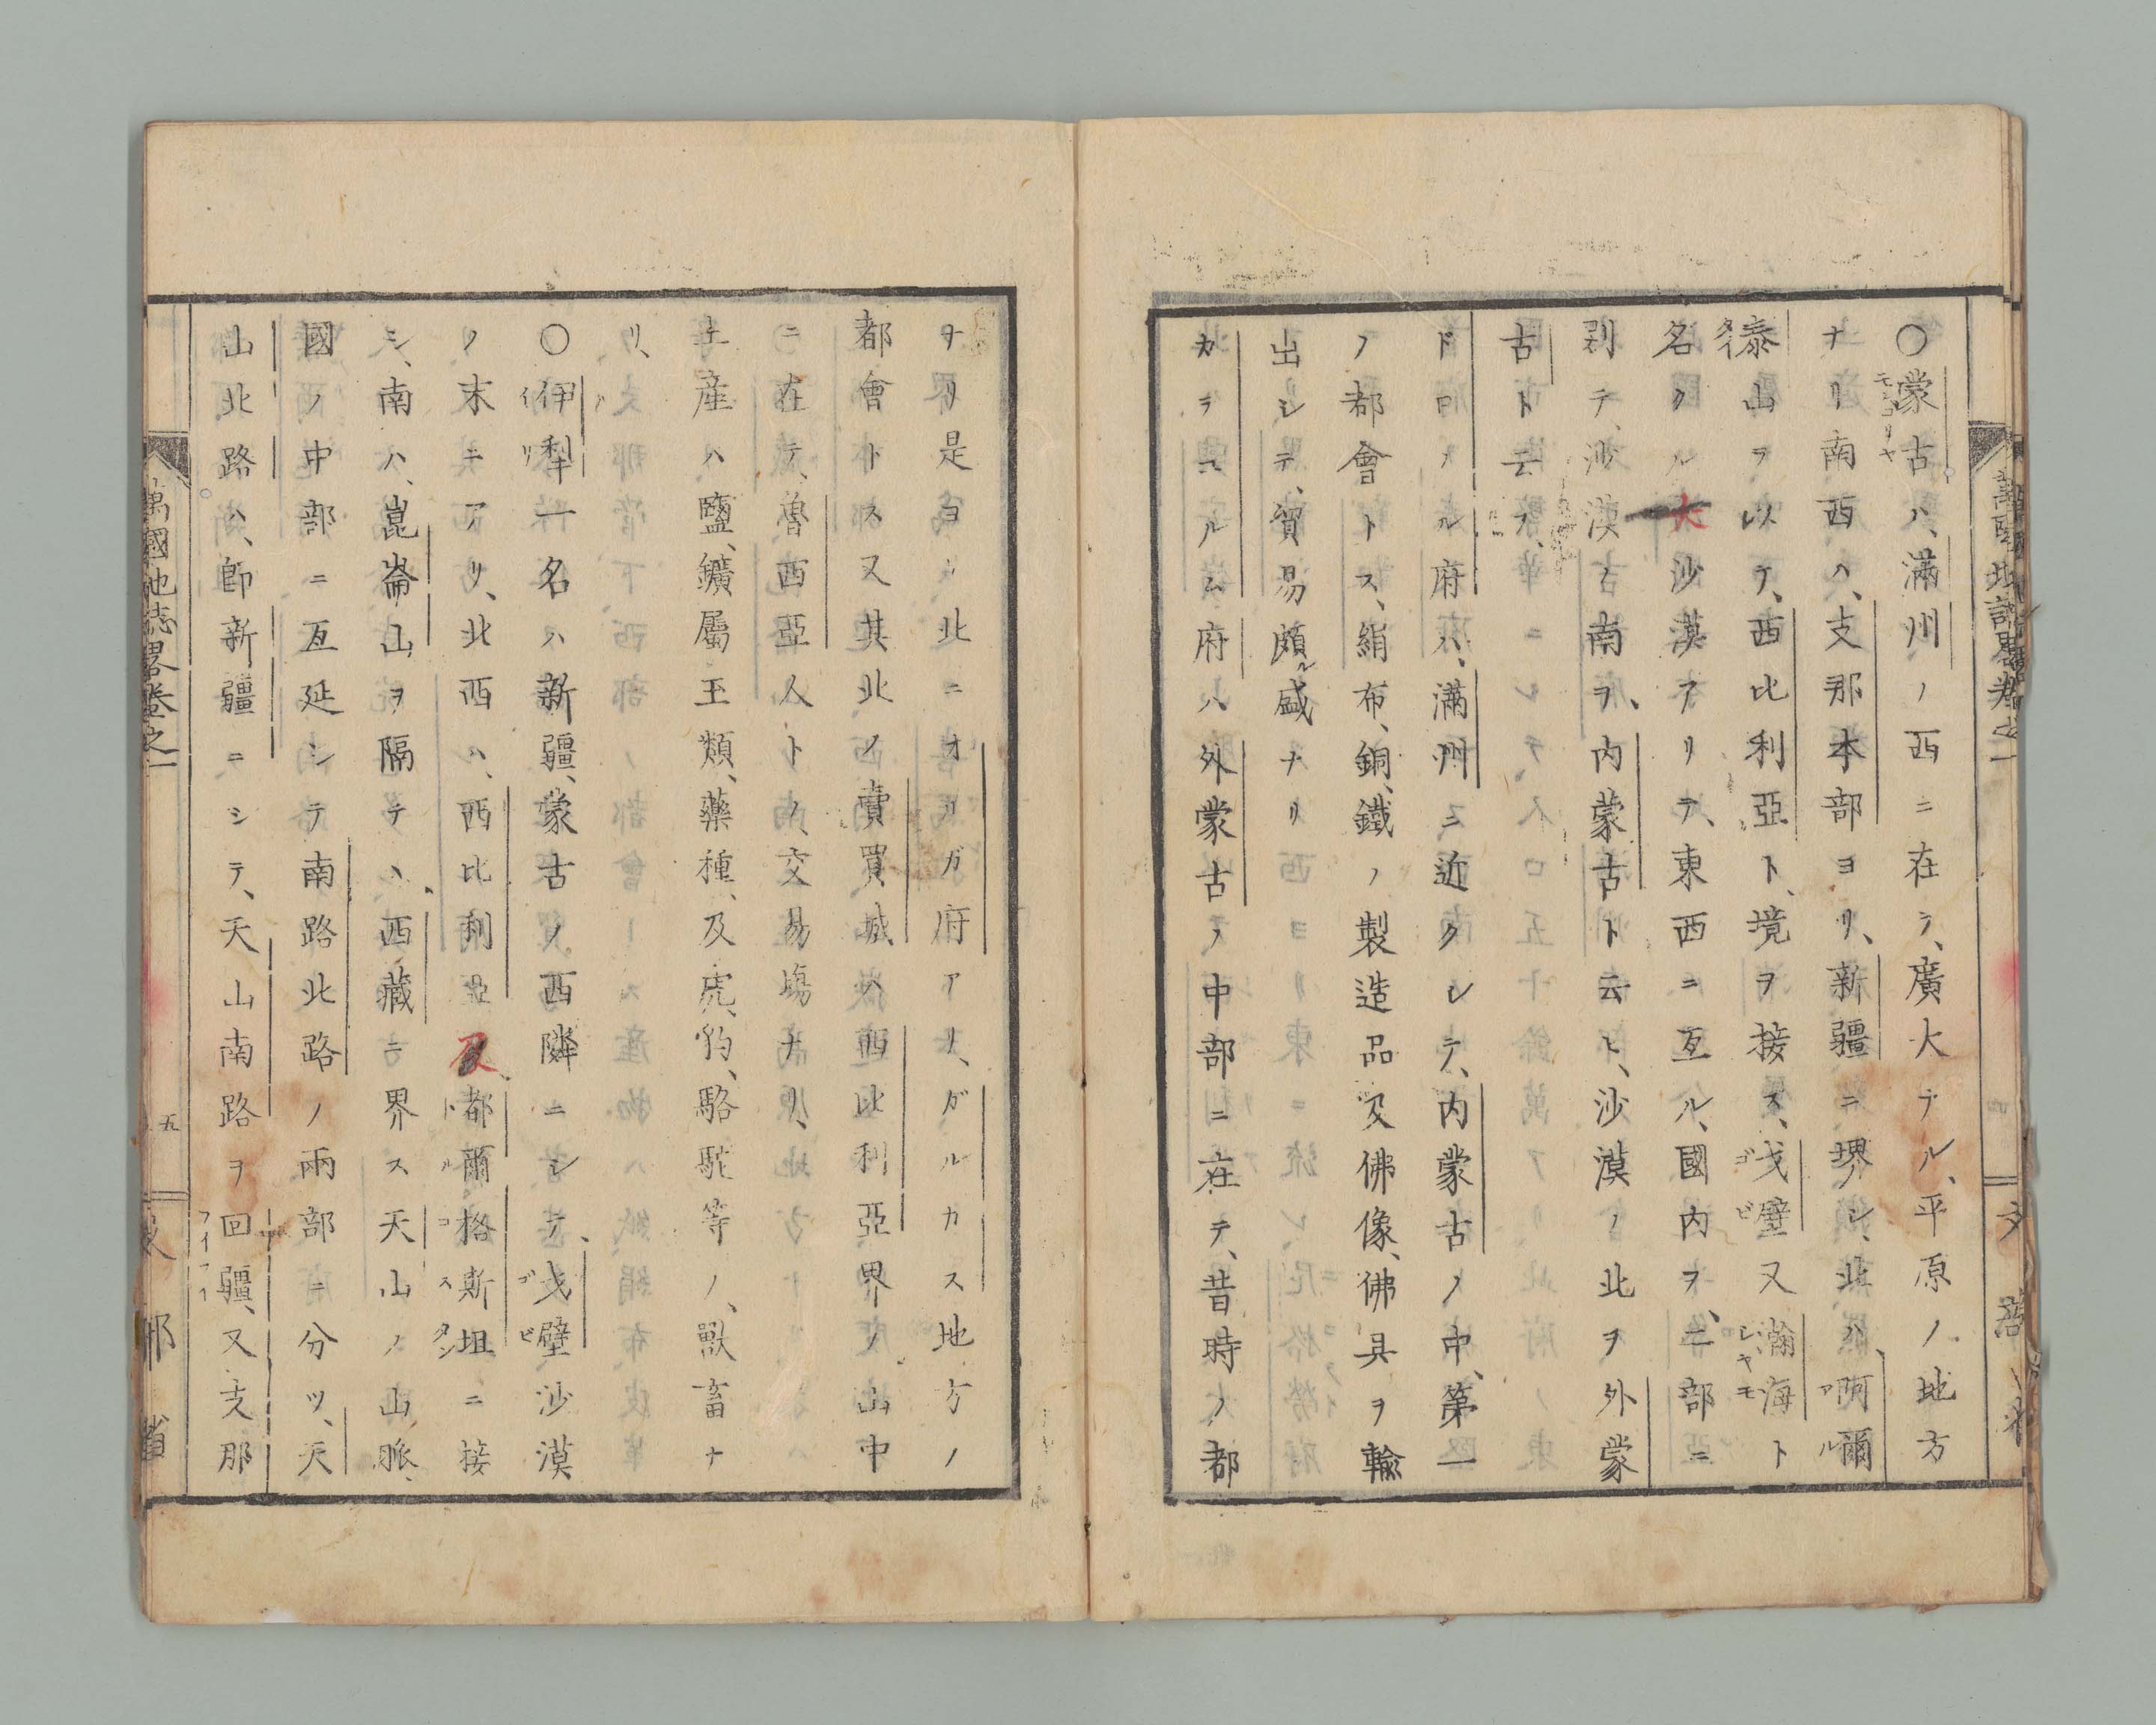 ○蒙古ハ、滿州ノ西ニ在テ、廣大ナル、平原ノ地方
モンゴリヤ
ナリ南西ハ、支那本部ヨリ、新疆ニ堺シ、北ハ、阿爾
アル
泰山ヲ以テ、西比利亞ト、境ヲ接ス、戈壁又瀚海ト
タイ
ゴビ
シヤモ
名クル大沙漠アリテ、東西ニ亙ル、國内ヲ、二部ニ
剖テ、沙漠ノ南ヲ、内蒙古ト云ヒ、沙漠ノ北ヲ外蒙
古ト云フ、
ドロノル府ハ、滿州ニ近クシテ、内蒙古ノ中、第一
ノ都會トス、絹布、銅、鐵ノ製造品及佛像、佛具ヲ輸
出シテ、貿易頗ル盛ナリ
カラコルム府ハ外蒙古ノ中部ニ在テ、昔時ノ都
萬國地誌畧卷之一
文部省
ヲリ是ヨリ北ニオルガ府アリ、ガルカス地方ノ
都會トス又其北ノ賣買城ハ西比利亞界ノ山中
ニ在テ、魯西亞人トノ、交易場ナリ、
土産ハ鹽、鑛屬玉類、藥種、及虎、豹、駱駝等ノ、獸畜ナ
リ、
○伊犁一名ハ新疆、蒙古ノ西隣ニシテ、戈壁沙漠
イリ
ゴビ
ノ末ニアリ、北西ハ、西比利亞及、都爾格斯坦ニ接
トルコスタン
シ、南ハ、崑崙山ヲ隔テヽ、西藏ニ界ス天山ノ山脈、
國ノ中部ニ亙延シテ南路北路ノ兩部ニ分ツ、天
山北路ハ、卽新疆ニシテ、天山南路ヲ回疆、又支那
萬國地誌畧卷之一
五
文部省